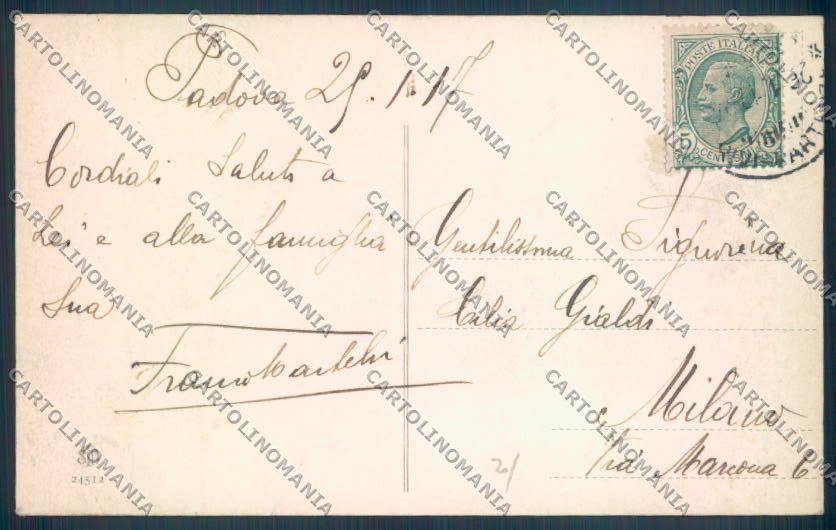 Padova 29.1.17
Cordiali saluti a
Lei e alla famiglia
Sua
Franco Martelli
POSTE ITALIANE
5 CENT
Gentilissima Signorina
Cilia Gialdi
Milano
Via Marcona 6
24512
CARTOLINOMANIA